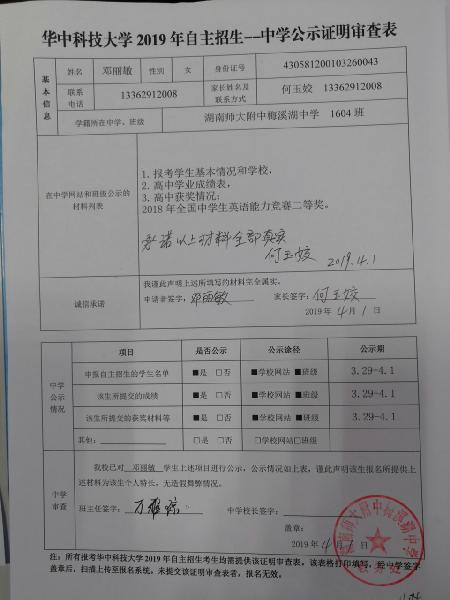 华中科技大学 2019 年自主招生--中学公示证明审查表
基本信息
姓名 邓丽敏 性别 女 身份证号 430581200103260043
联系电话 13362912008 家长姓名及联系方式 何玉姣 13362912008
学籍所在中学、班级 湖南师大附中梅溪湖中学 1604 班
在中学网站和班级公示的材料列表
1. 报考学生基本情况和学校,
2. 高中学业成绩表,
3. 高中获奖情况:
2018 年全国中学生英语能力竞赛二等奖。
承诺以上材料全部真实
何玉姣 2019.4.1
诚信承诺
我谨此声明上述所填写的材料完全属实。
申请者签字: 邓丽敏 家长签字: 何玉姣
2019 年 4 月 1 日
中学公示情况
项目 是否公示 公示途径 公示期
申报自主招生的学生名单 ■是 □否 ■学校网站 ■班级 3.29-4.1
该生所提交的成绩 ■是 □否 ■学校网站 ■班级 3.29-4.1
该生所提交的获奖材料等 ■是 □否 ■学校网站 ■班级 3.29-4.1
其他: □是 □否 □学校网站□班级
中学审查
我校已对 邓丽敏 学生上述项目进行公示, 公示情况如上表, 谨此声明该生报名所提供上
述材料为该生个人特长, 无造假舞弊情况。
班主任签字: 中学校长签字:
盖章:
2019 年 4 月 1 日
注: 所有报考华中科技大学 2019 年自主招生考生均需提供该证明审查表。该表格打印填写, 经中学签字
盖章后, 扫描上传至报名系统。未提交该证明审查表者, 报名无效。